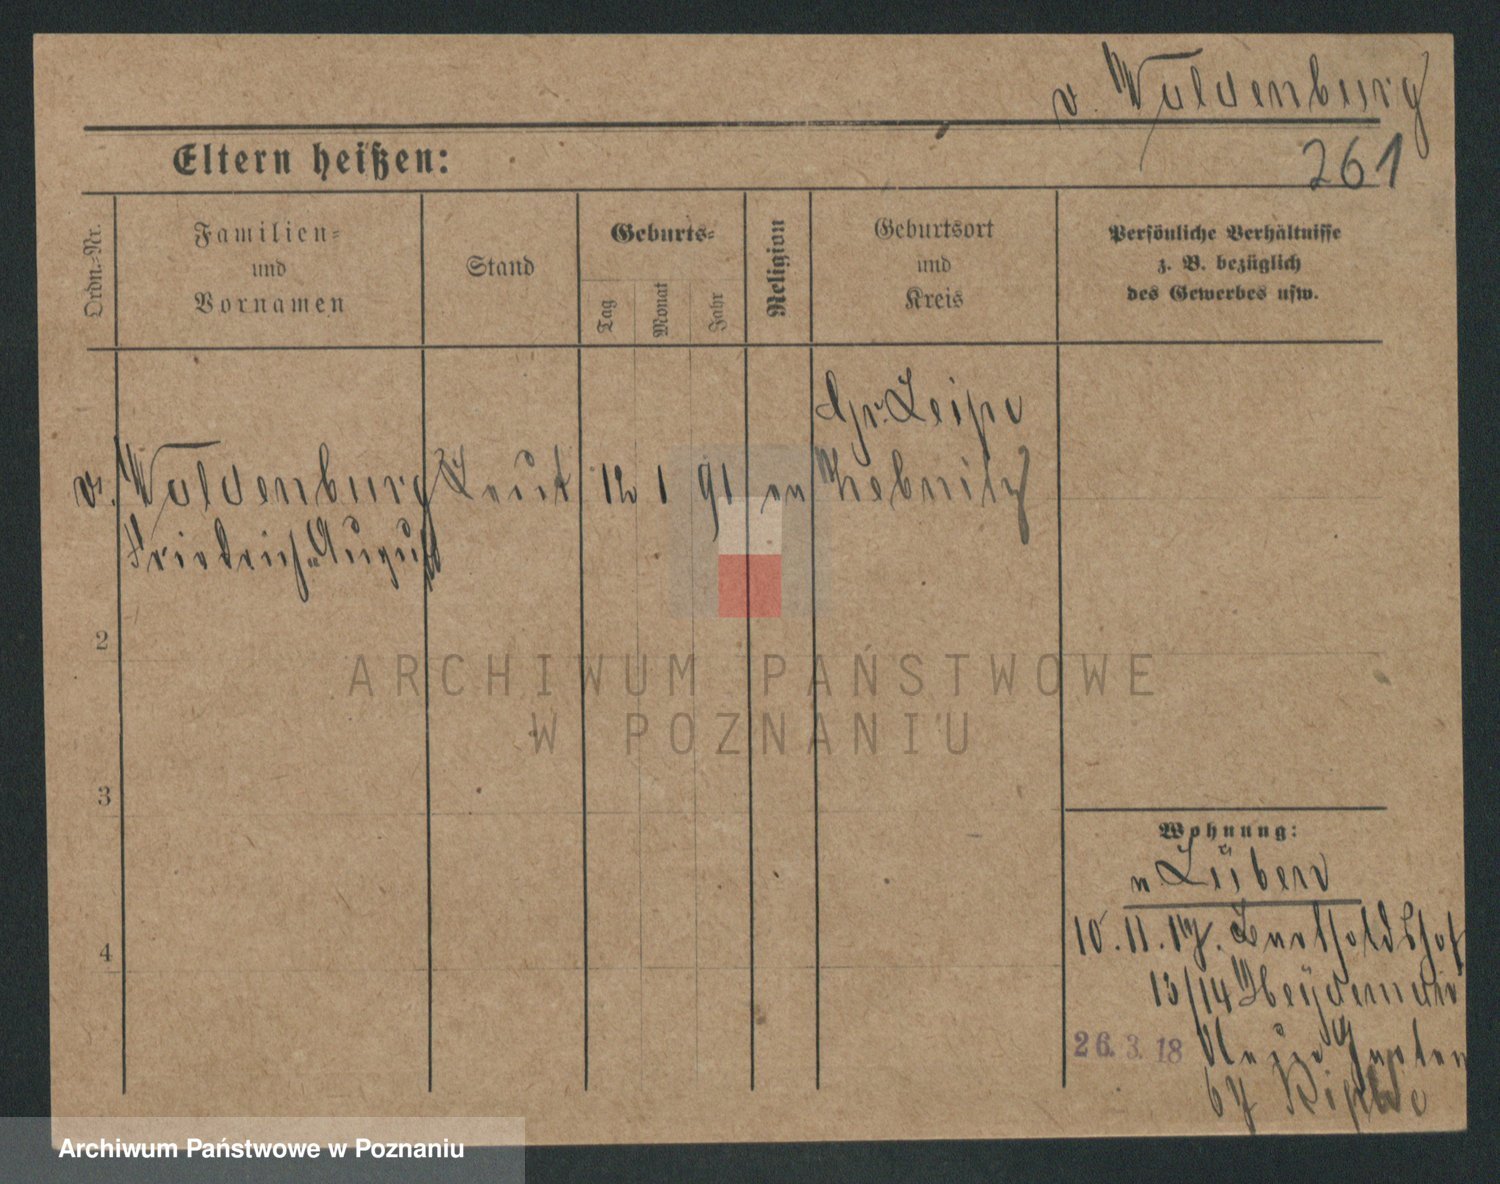 v. Waldenburg
261
Eltern heißen:
Ordn.-Nr.
Familien-
und
Vornamen
Stand
Geburts-
Tag
Monat
Jahr
Religion
Geburtsort
und
Kreis
Persönliche Verhältnisse
z. B. bezüglich
des Gewerbes usw.
Gr. Leipe
v. Waldenburg Leut 12 1 91 ev Trebnitz
Friedrich-August
2
3
4
ARCHIWUM PAŃSTWOWE
W POZNANIU
Wohnung:
n Lüben
10.11.17.
13/14
26.3.18 Neue Garten
67
Archiwum Państwowe w Poznaniu